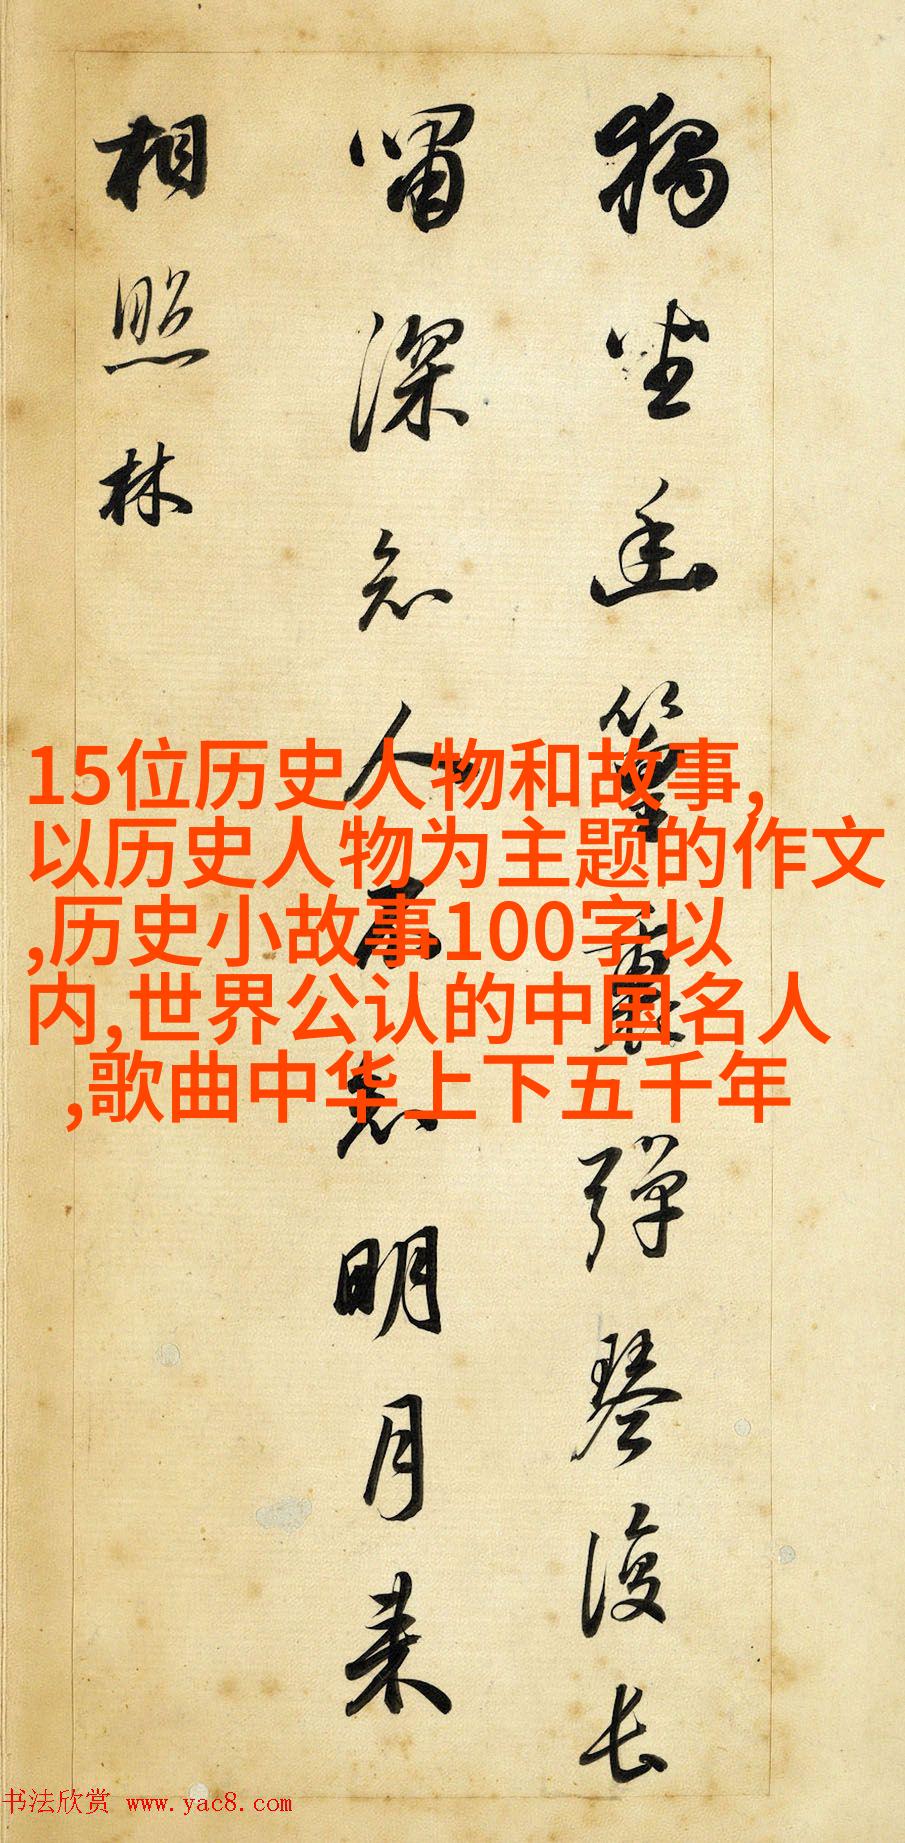 獨坐幽篁裏彈琴復長
嘯深知人不知明月来
相照林
15位历史人物和故事,
以历史人物为主题的作文
,历史小故事100字以
内,世界公认的中国名人
,歌曲中华上下五千年
书法欣赏 www.yac8.com